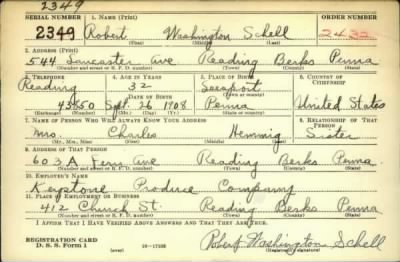 2349
SERIAL NUMBER 1. NAME (Print) ORDER NUMBER
2349 Robert Washington Schell 2432
(First) (Middle) (Last)
2. ADDRESS (Print)
544 Lancaster Ave Reading Berks Penna
(Number and street or R. F. D. number) (Town) (County) (State)
3. TELEPHONE 4. AGE IN YEARS 5. PLACE OF BIRTH 6. COUNTRY OF CITIZENSHIP
Reading 32
DATE OF BIRTH (Town or county)
43550 Sept. 26 1908 Penna United States
(Exchange) (Number) (Mo.) (Day) (Yr.) (State or country)
7. NAME OF PERSON WHO WILL ALWAYS KNOW YOUR ADDRESS 8. RELATIONSHIP OF THAT PERSON
Mrs. Charles Hemmig Sister
(Mr., Mrs., Miss) (First) (Middle) (Last)
9. ADDRESS OF THAT PERSON
603A Fern Ave Reading Berks Penna.
(Number and street or R. F. D. number) (Town) (County) (State)
10. EMPLOYER'S NAME
Keystone Produce Company
11. PLACE OF EMPLOYMENT OR BUSINESS
412 Church St. Reading Berks Penna
(Number and street or R. F. D. number) (Town) (County) (State)
I AFFIRM THAT I HAVE VERIFIED ABOVE ANSWERS AND THAT THEY ARE TRUE.
REGISTRATION CARD
D. S. S. Form 1 (over) Robert Washington Schell